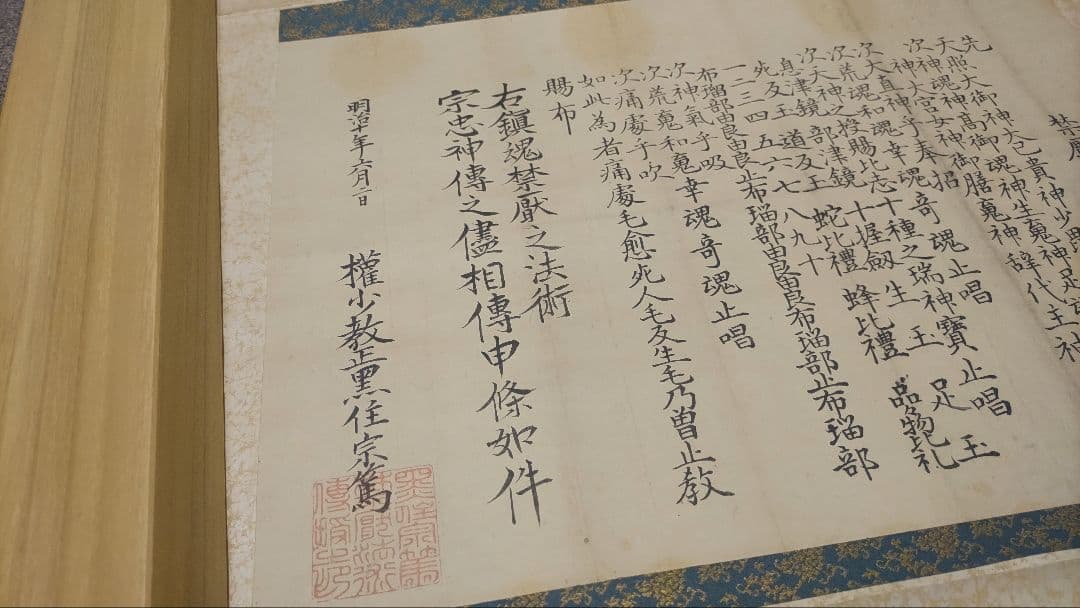 禁厭
先
天照大御神大己貴神少毘
神魂神高御魂神生䰟神足
神大宮女神御膳䰟神辞代主神
次大直神乎奉招
次荒魂和魂幸魂奇魂止唱
次天神之授賜比志十種之瑞神寶止唱
息津鏡 部津鏡 十握劔 生玉 足玉
死反玉 道反玉 蛇比禮 蜂比禮 品物比礼
一二三四五六七八九十
布瑠部由良由良止布瑠部由良由良布瑠部止布瑠部
次神氣乎吸
次荒䰟和䰟幸魂奇魂止唱
次痛處乎吹
如此為者痛處毛愈死人毛反生毛乃曽止教
賜布
右鎮魂禁厭之法術
宗忠神傳之儘相傳申條如件
明治十年六月二日
權少教正黒住宗篤